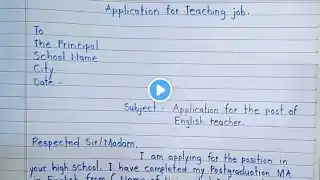 Application for Teaching job.
To
The Principal
School Name
City -
Date -
Subject - Application for the post of
English teacher.
Respected Sir/Madam,
I am applying for the position in
your high school. I have completed my Postgraduation MA
in English from (Name of